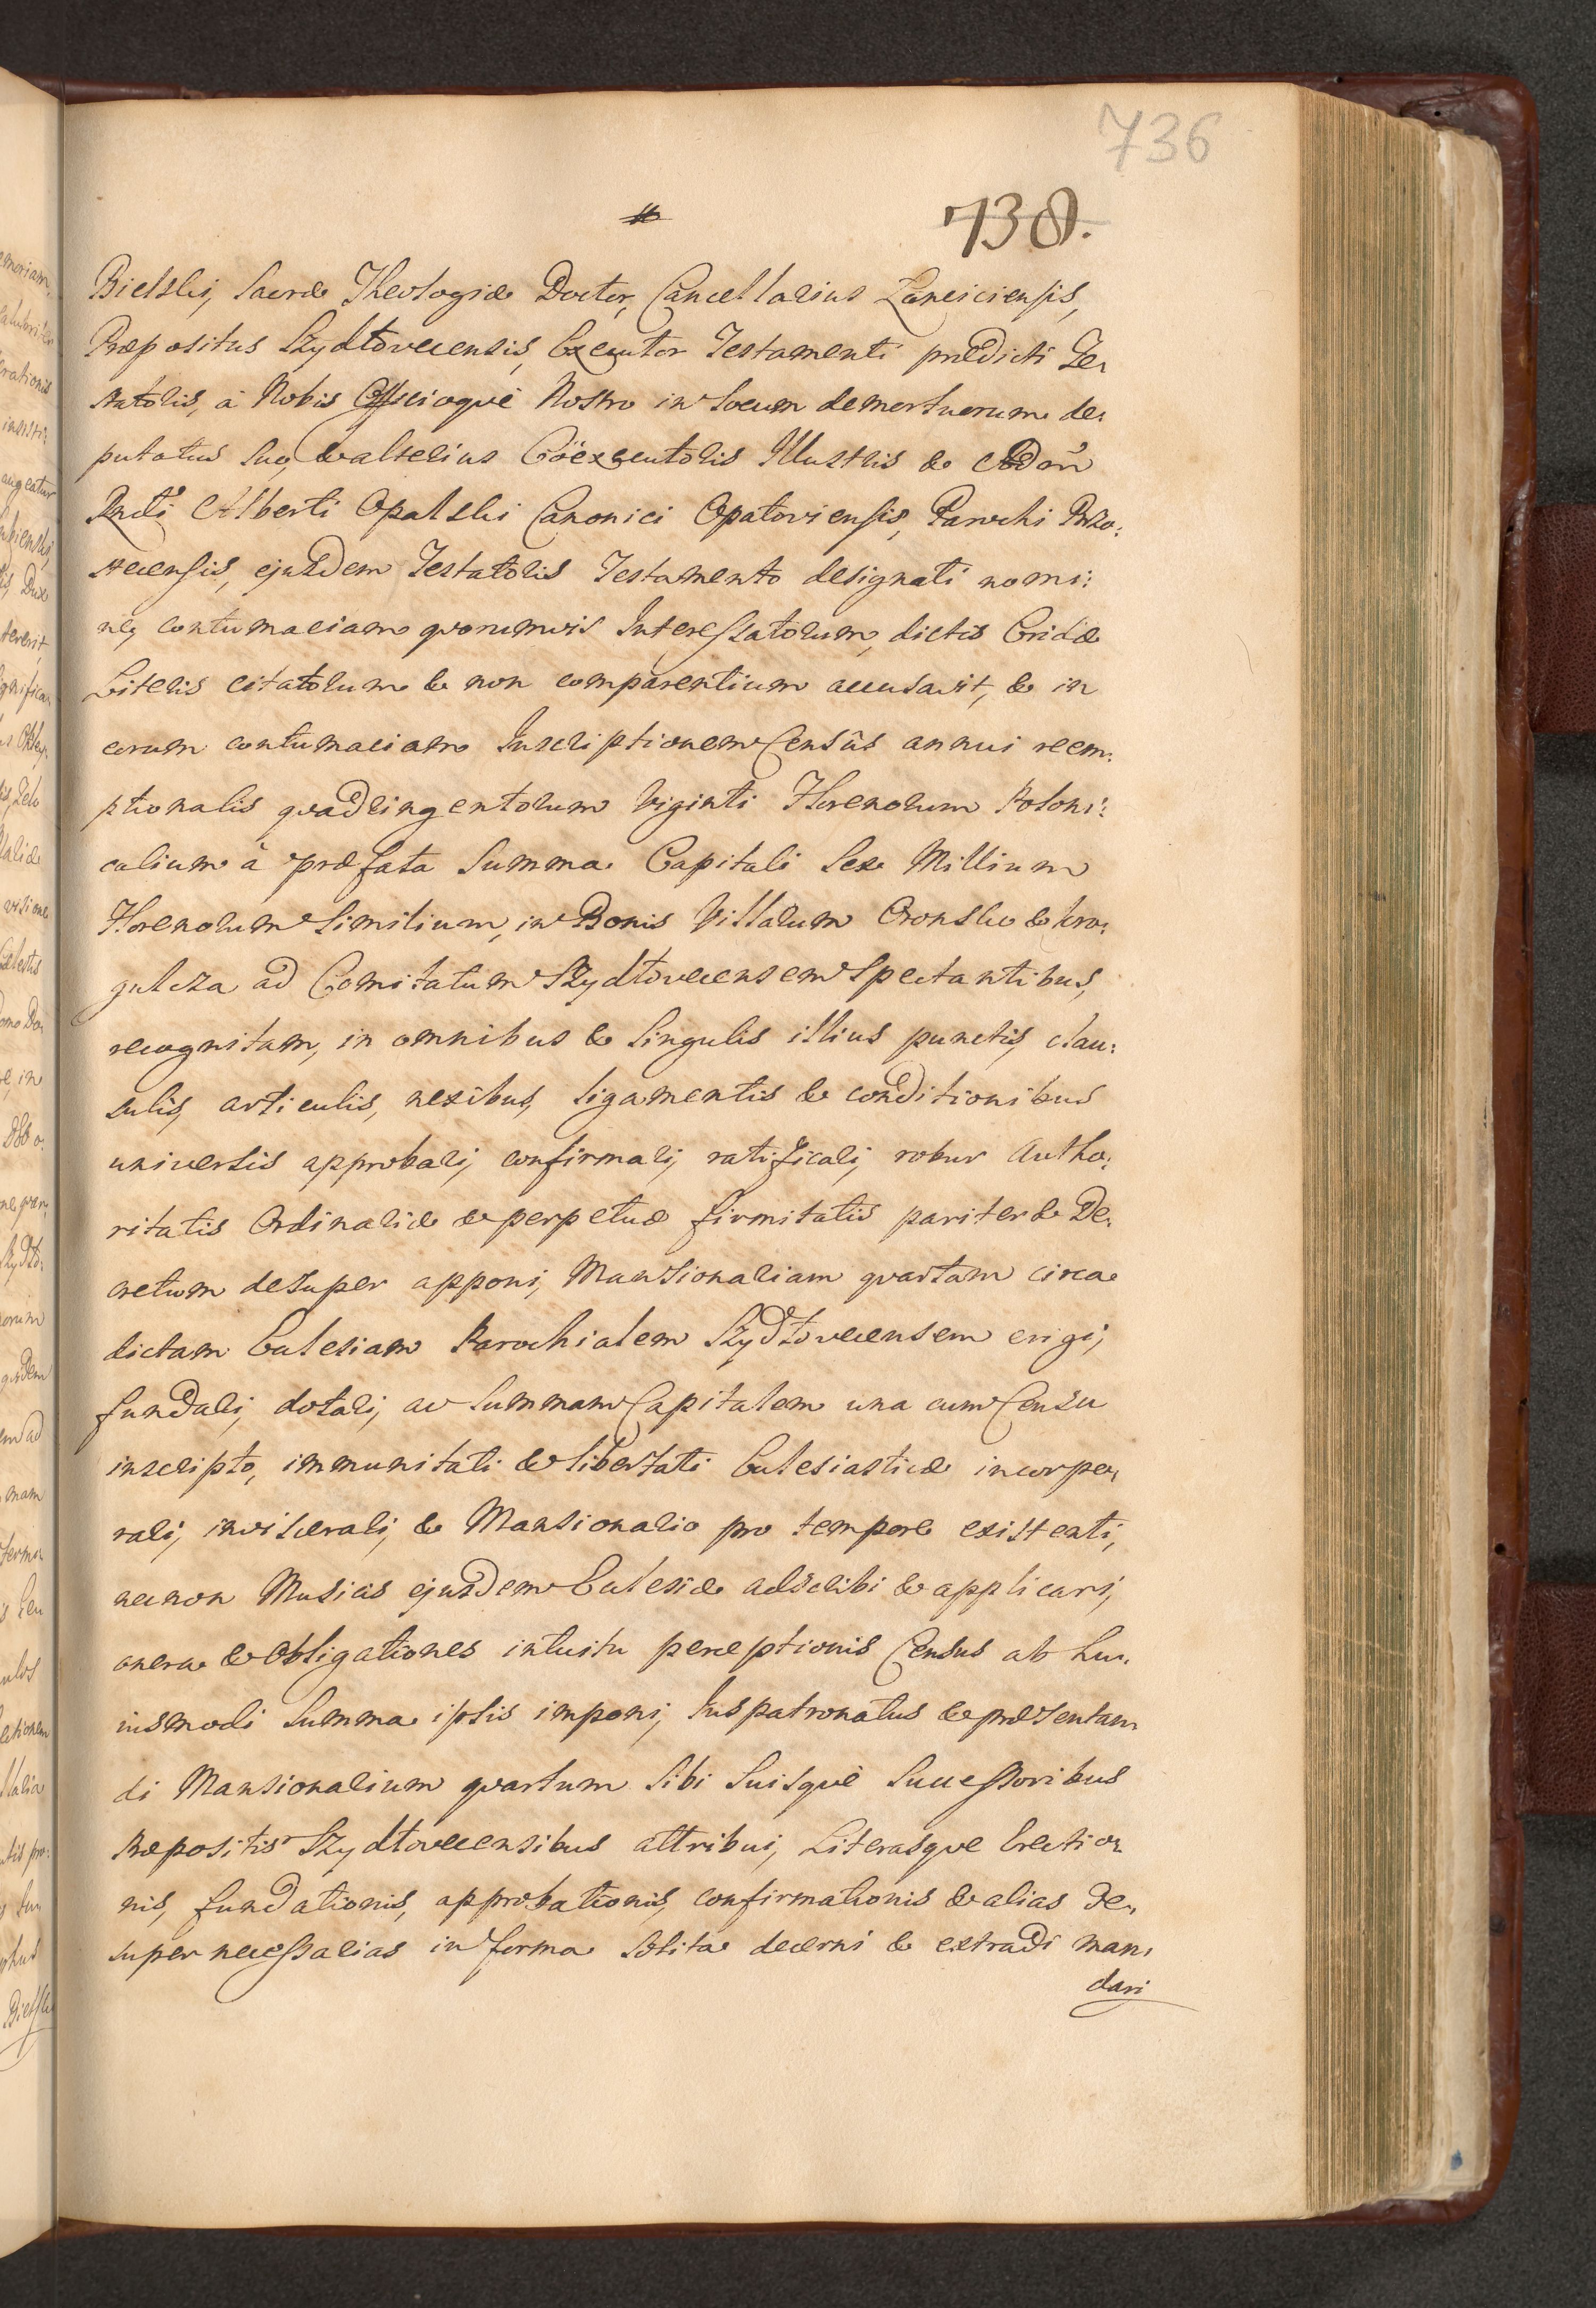 736
738.
Bielski, Sacræ Theologiæ Doctor, Cancellarius Lanciciensis,
Præpositus Szydłoviecensis, Executor Testamenti prædicti Te,
statoris, à Nobis Officioqué Nostro in locum demortuorum de,
putatus suo, & alterius Cöexecutoris Illustris & Adm̃
Rñdi Alberti Opalski Canonici Opatoviensis, Parochi
ejusdem Testatoris Testamento designati nomi:
ne, contumaciam quorumvis Interessatorum, dictis Cridæ
Literis citatorum & non comparentium accusavit, & in
eorum contumaciam Inscriptionem Censûs annui reem:
ptionalis quadringentorum Viginti Florenorum Poloni:
calium à præfata Summa Capitali Sex Millium
Florenorum Similium, in Bonis Villarum Oronsko & Kro:
gulcza ad Comitatum Szydłoviecensem Spectantibus,
recognitam, in omnibus & Singulis illius punctis, clau:
sulis, articulis, nexibus, ligamentis & conditionibus
universis approbari, confirmari, ratificari, robur Autho:
ritatis Ordinariæ & perpetuæ firmitatis pariter & De,
cretum desuper apponi, Mansionariam quartam circa
dictam Ecclesiam Parochialem Szydłoviecensem erigi,
fundari, dotari, ac Summam Capitalem una cum Censu
inscripto, immunitati & libertati Ecclesiasticæ incorpo,
rari, inviscerari, & Mansionario pro tempore existenti,
necnon Musicis ejusdem Ecclesiæ adscribi & applicari,
onera & Obligationes intuitu perceptionis Census ab hu,
iusmodi Summa ipsis imponi, Iuspatronatus & præsentan,
di Mansionarium quartum Sibi Suisqué Successoribus
Præpositis Szydłoviecensibus attribui, Literasque Erectio,
nis, fundationis, approbationis, confirmationis & alias de,
super necessarias in forma Solita decerni & extradi man,
dari